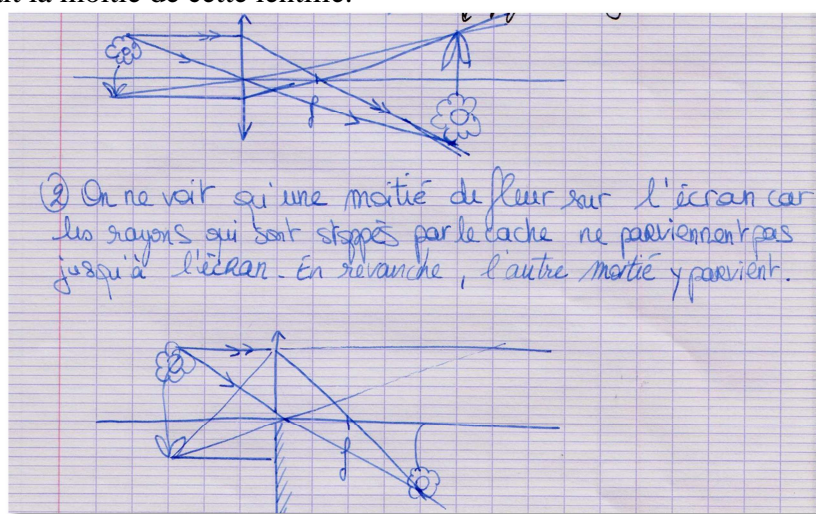 la moitié de cette lentille.
f
② On ne voit qu'une moitié de fleur sur l'écran car
les rayons qui sont stoppés par le cache ne parviennent pas
jusqu'à l'écran. En revanche, l'autre moitié y parvient.
f